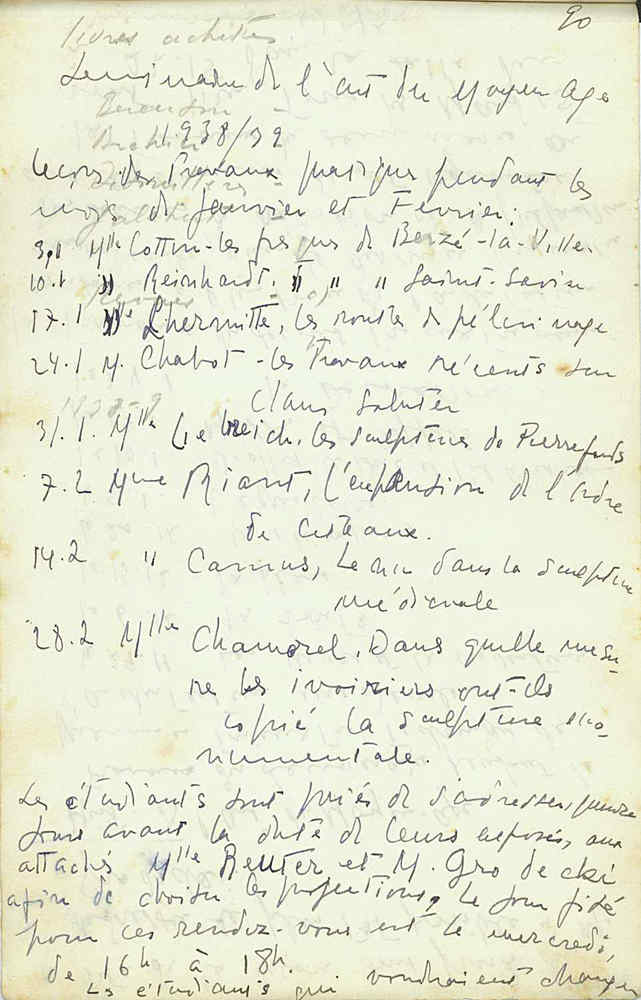 90
livres achetés
Séminaire de l'art du Moyen Age
1938/39
Leçons des Travaux pratiques pendant les
mois de Janvier et Février:
3.1 Mlle Cottin - les fresques de Berzé-la-Ville.
10.1 " Reinhardt. " " " Saint-Savin
17.1 Mlle Lhermitte, les routes de pélerinage
24.1 M. Chabot - les Travaux récents sur
Claus Sluter
31.1. Mlle les sculptures de Pierrefonds
7.2 Mme Riant, L'expansion de l'Ordre
de Citeaux.
14.2 " Camus, Le nu dans la sculpture
médiévale
28.2 Mlle Chamorel. Dans quelle mesu-
re les ivoiriers ont-ils
copié la sculpture mo-
numentale.
Les étudiants sont priés de s'adresser, quinze
jours avant la date de leurs exposés, aux
attachés Mlle Reuter et M. Grodecki
afin de choisir les projections, Le jour fixé
pour ces rendez-vous est le mercredi,
de 16h à 18h.
Les étudiants qui voudraient changer